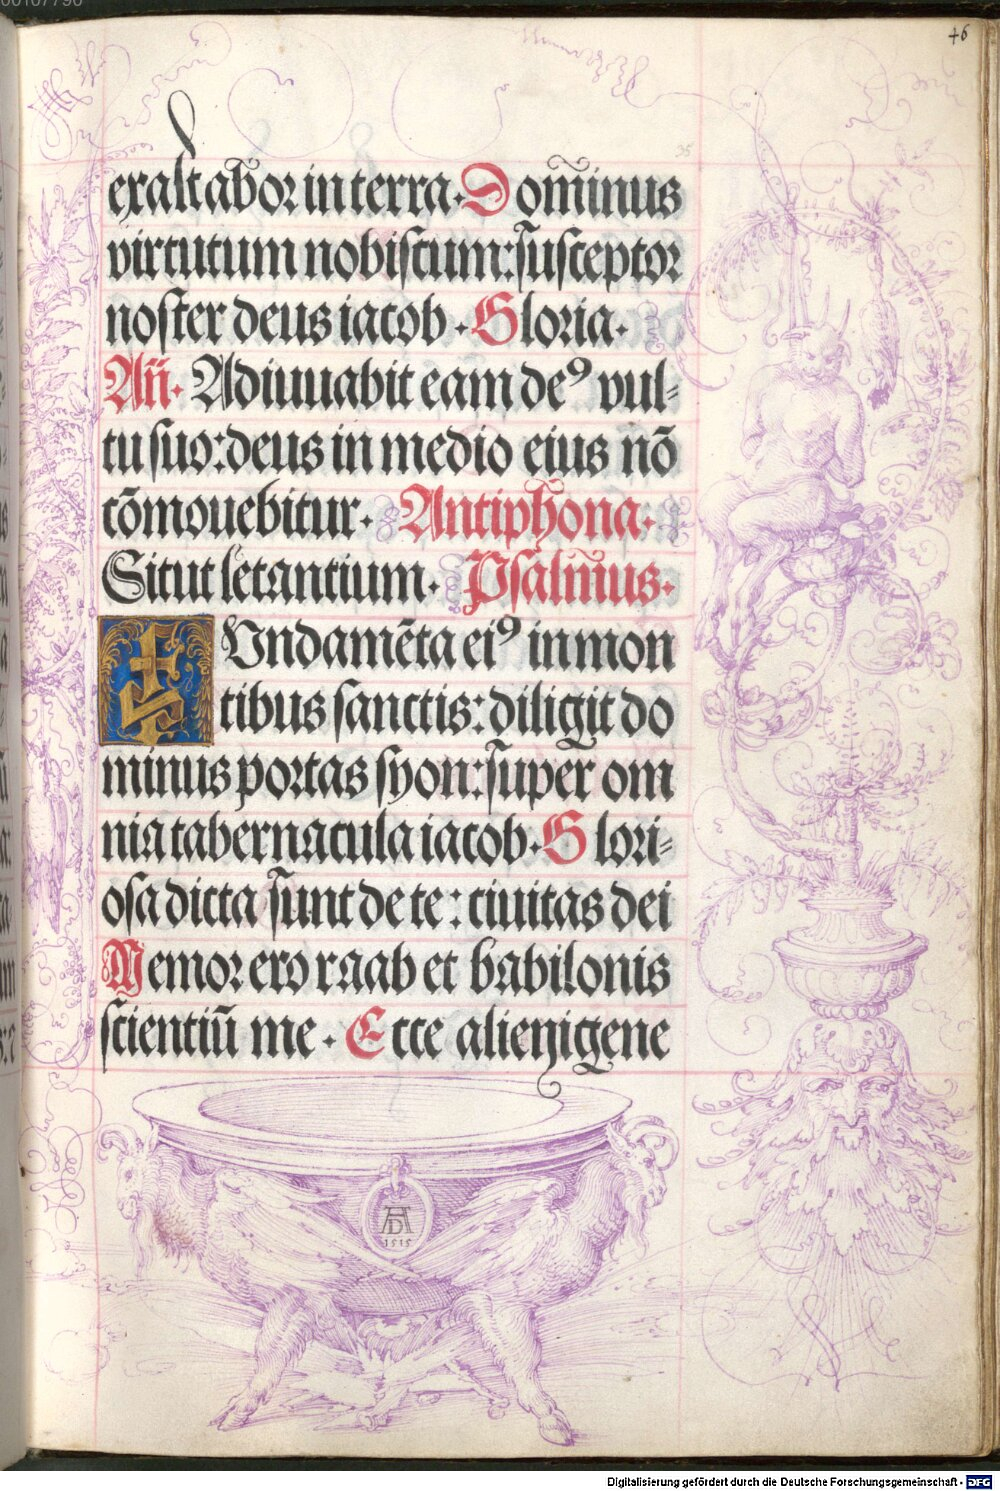 00107790
46
35
exaltabor in terra. Dom̄inus
virtutum nobiscum: susceptor
noster deus iacob. Gloria.
Añ. Adiuuabit eam deꝰ vul⸗
tu suo: deus in medio eius nō
cōmouebitur. Antiphona.
Sicut letantium. Psalm̄us.
FVndamēta eiꝰ in mon
tibus sanctis: diligit do
minus portas syon: super om
nia tabernacula iacob. Glori⸗
osa dicta sunt de te: ciuitas dei
Memor ero raab et babilonis
scientiū me. Ecce alienigene
AD
1515
Digitalisierung gefördert durch die Deutsche Forschungsgemeinschaft - DFG